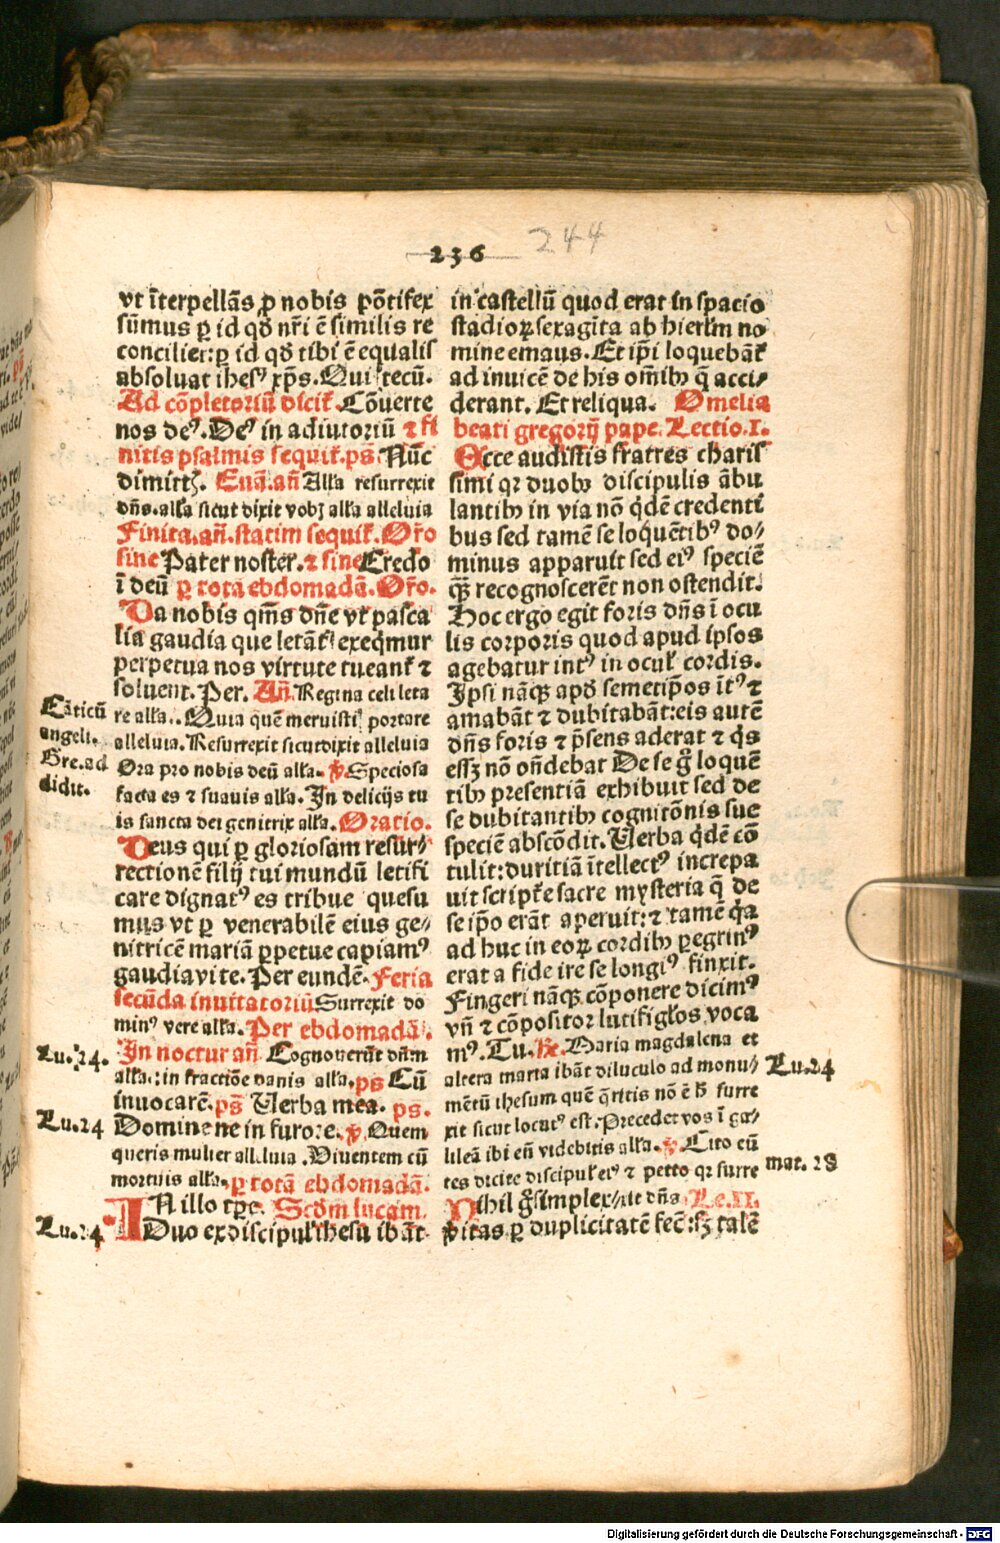 236
244
vt īterpellās ꝑ nobis pōtifex
sūmus ꝑ id qđ nr̄i ē similis re
concilier: ꝑ id qđ tibi ē equalis
absoluat ihes⁹ xp̄s. Qui tecū.
Ad cōpletoriū dicit̄. Cōuerte
nos de⁹. De⁹ in adiutoriū ⁊ fi
nitis psalmis sequit̄. ps̄. Nūc
dimittꝫ. Euā. añ Alla resurrexit
dñs. alla sicut dixit vobꝫ alla alleluia
Finita. añ. statim sequit̄. Or̄o
sine Pater noster. ⁊ sine Credo
ī deū ꝑ totā ebdomadā. Or̄o.
Da nobis qm̄s dn̄e vt pasca
lia gaudia que letāt̄ exeqmur
perpetua nos virtute tueant̄ ⁊
soluent. Per. Añ. Regina celi leta
re alla. . Quia quē meruisti portare
alleluia. Resurrexit sicut dixit alleluia
Ora pro nobis deū alla. ℣ Speciosa
facta es ⁊ suauis alla. In delicijs tu
is sancta dei genitrix alla. Oratio.
Deus qui ꝑ gloriosam resur⸗
rectionē filij tui mundū letifi
care dignat⁹ es tribue quesu
mus vt ꝑ venerabilē eius ge⸗
nitricē mariā ꝑpetue capiam⁹
gaudia vite. Per eundē. Feria
secūda inuitatoriū Surrexit do
min⁹ vere alla. Per ebdomadā.
In noctur añ Cognouerūt dñm
alla: in fractiōe panis alla. ps Cū
inuocarē. ps̄ Verba mea. ps.
Domine ne in furore. ℣ Quem
queris mulier alleluia. Viuentem cū
mortuis alla. ꝑ totā ebdomadā.
IN illo tꝑe. Scd̄m lucam.
Duo ex discipul̄ ihesu ibāt
Cāticū
angeli.
Gre. ad
didit.
Lu. 24.
Lu. 24
Lu. 24
in castellū quod erat in spacio
stadioꝝ sexagīta ab hierlm̄ no
mine emaus. Et ip̄i loquebāt̄
ad inuicē de his om̄ibꝫ q̄ acci⸗
derant. Et reliqua. Omelia
beati gregorij pape. Lectio. I.
Ecce audistis fratres charis
simi qꝛ duobꝫ discipulis ābu
lantibꝫ in via nō q̄dē credenti
bus sed tamē se loquētib⁹ do⸗
minus apparuit sed ei⁹ speciē
quā recognoscerēt non ostendit.
Hoc ergo egit foris dñs ī ocu
lis corporis quod apud ipsos
agebatur int⁹ in ocul̄ cordis.
Ipsi nāqꝫ apđ semetip̄os īt⁹ ⁊
amabāt ⁊ dubitabāt: eis autē
dñs foris ⁊ p̄sens aderat ⁊ q̇s
essꝫ nō on̄debat De se g̊ loquē
tibꝫ presentiā exhibuit sed de
se dubitantibꝫ cognitōnis sue
speciē abscōdit. Verba q̄dē cō
tulit: duritiā ītellect⁹ increpa
uit script̄e sacre mysteria q̄ de
se ip̄o erāt aperuit: ⁊ tamē q̇a
ad huc in eoꝝ cordibꝫ ꝑegrin⁹
erat a fide ire se longi⁹ finxit.
Fingeri nāqꝫ cōponere dicim⁹
vn̄ ⁊ cōpositor luti figl̄os voca
m⁹. Tu. ℟. Maria magdalena et
altera maria ibāt diluculo ad monu⸗
mētū ihesum quē q̄ritis nō ē h̄ surre
xit sicut locut⁹ est. Precedet vos ī ga⸗
lileā ibi eū videbitis alla. ℣ Cito eū
tes dicite discipul̄ ei⁹ ⁊ petro qꝛ surre
Nihil g̊ simplex dñs Le. II.
v̄itas ꝑ duplicitatē fec̄: sꝫ talē
Lu. 24
mat. 28
Digitalisierung gefördert durch die Deutsche Forschungsgemeinschaft - DFG